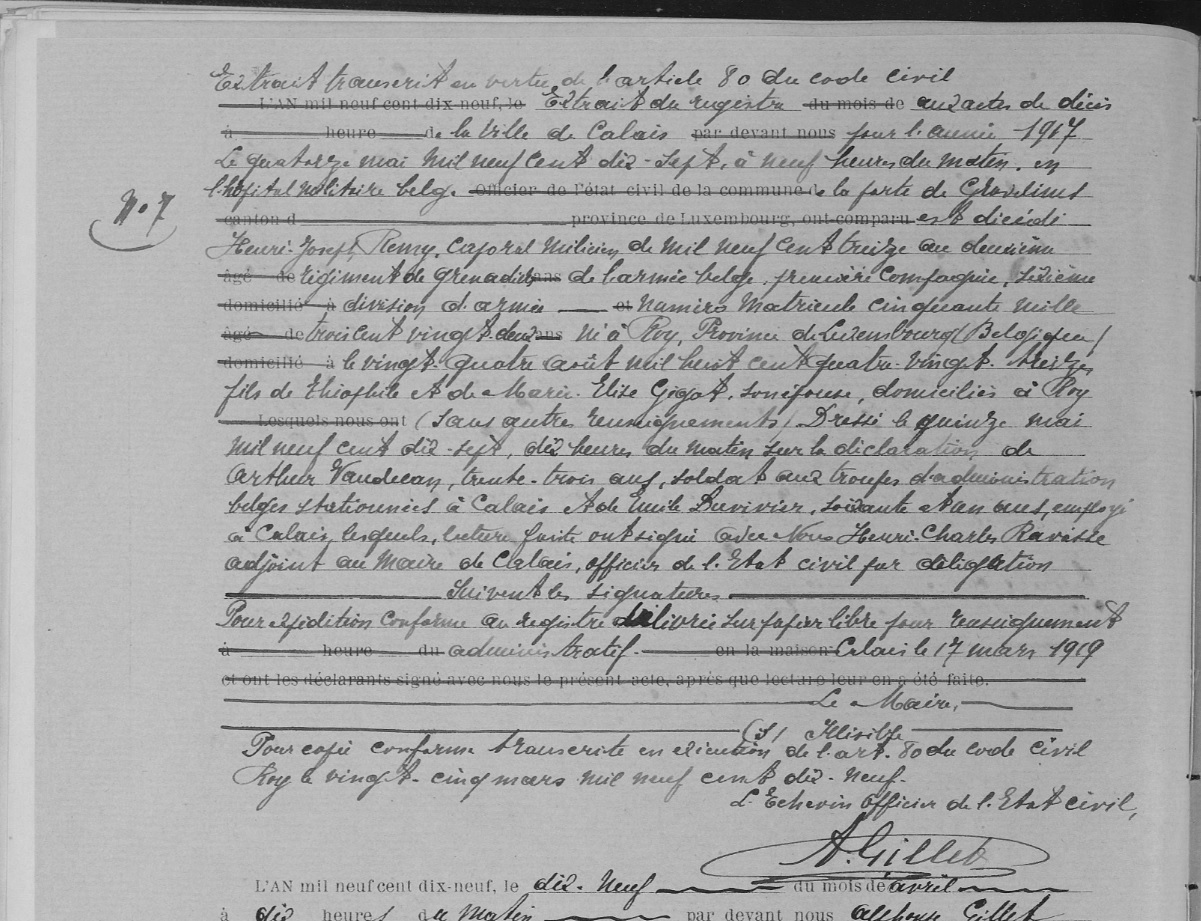 Extrait transcrit en vertu de l'article 80 du code civil
L'AN mil neuf cent dix-neuf, le Extrait du registre du mois de aux actes de décès
à heure de la Ville de Calais par devant nous pour l'année 1917
Le quatorze mai mil neuf cent dix-sept, à neuf heures du matin, en
l'hôpital militaire belge officier de l'état civil de la commune de la porte de Gravelines
N° 7
canton d province de Luxembourg, ont comparu est décédé
Henri-Joseph Remy, Caporal milicien de mil neuf cent treize au deuxième
âgé de régiment de grenadiers ans de l'armée belge, première compagnie, sixième
domicilié à division d'armée et numéro matricule cinquante mille
âgé de trois cent vingt-deux ans né à Roy, Province de Luxembourg (Belgique)
domicilié à le vingt-quatre août mil huit cent quatre-vingt-treize
fils de Théophile et de Marie-Elise Gigot, son épouse, domiciliés à Roy
Lesquels nous ont (sans autres renseignements) Dressé le quinze mai
mil neuf cent dix-sept, dix heures du matin sur la déclaration de
Arthur trente-trois ans, soldat aux troupes d'administration
belges stationnées à Calais et de Emile Duvivier, soixante et un ans, employé
à Calais, lesquels, lecture faite ont signé avec Nous Henri-Charles Ravisse
adjoint au Maire de Calais, officier de l'Etat civil par délégation
Suivent les signatures
Pour expédition conforme au registre délivrée sur papier libre pour renseignement
à heure du administratif. en la maison Calais le 17 mars 1919
et ont les déclarants signé avec nous le présent acte, après que lecture leur en a été faite.
Le Maire,
(s) Illisible
Pour copie conforme transcrite en exécution de l'art. 80 du code civil
Roy le vingt-cinq mars mil neuf cent dix-neuf.
L'Echevin officier de l'Etat civil,
A. Gillet
L'AN mil neuf cent dix-neuf, le dix-neuf du mois de avril
à dix heures du matin par devant nous Alphonse Gillet